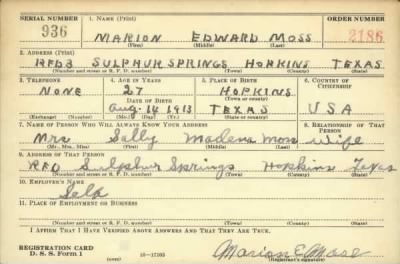 SERIAL NUMBER 1. NAME (Print) ORDER NUMBER
936 MARION EDWARD MOSS 2186
(First) (Middle) (Last)
2. ADDRESS (Print)
RFD3 SULPHUR SPRINGS HOPKINS TEXAS
(Number and street or R. F. D. number) (Town) (County) (State)
3. TELEPHONE 4. AGE IN YEARS 5. PLACE OF BIRTH 6. COUNTRY OF CITIZENSHIP
NONE 27 HOPKINS
DATE OF BIRTH (Town or county)
Aug 14 1913 TEXAS USA
(Exchange) (Number) (Mo.) (Day) (Yr.) (State or country)
7. NAME OF PERSON WHO WILL ALWAYS KNOW YOUR ADDRESS 8. RELATIONSHIP OF THAT PERSON
Mrs Sally Madena Moss Wife
(Mr., Mrs., Miss) (First) (Middle) (Last)
9. ADDRESS OF THAT PERSON
RFD Sulphur Springs Hopkins Texas
(Number and street or R. F. D. number) (Town) (County) (State)
10. EMPLOYER'S NAME
Self
11. PLACE OF EMPLOYMENT OR BUSINESS
(Number and street or R. F. D. number) (Town) (County) (State)
I AFFIRM THAT I HAVE VERIFIED ABOVE ANSWERS AND THAT THEY ARE TRUE.
REGISTRATION CARD
D. S. S. Form 1 (over) 16—17105 Marion E Moss
(Registrant's signature)